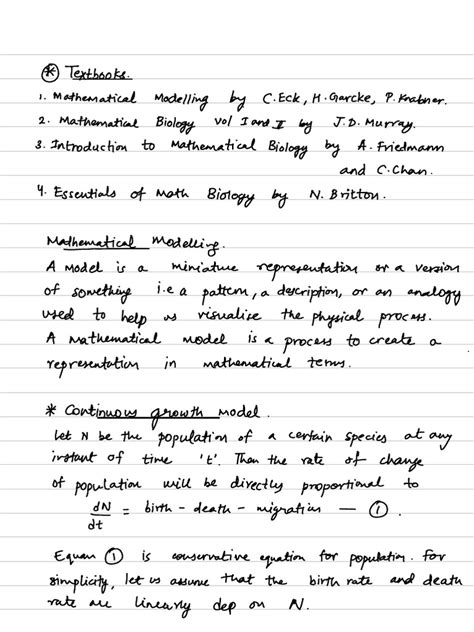 * Textbooks.
1. Mathematical Modelling by C.Eck, H.Garcke, P.Knabner.
2. Mathematical Biology vol I and II by J.D. Murray.
3. Introduction to Mathematical Biology by A. Friedmann
and C.Chan.
4. Essentials of Math Biology by N. Britton.
Mathematical Modelling.
A Model is a miniature representation or a version
of something i.e a pattern, a description, or an analogy
used to help us visualise the physical process.
A Mathematical model is a process to create a
representation in mathematical terms.
* Continuous growth model.
Let N be the population of a certain species at any
instant of time 't'. Then the rate of change
of population will be directly proportional to
dN/dt = birth - death - migration — ①.
Equan ① is conservative equation for population. For
simplicity, let us assume that the birth rate and death
rate are linearly dep on N.